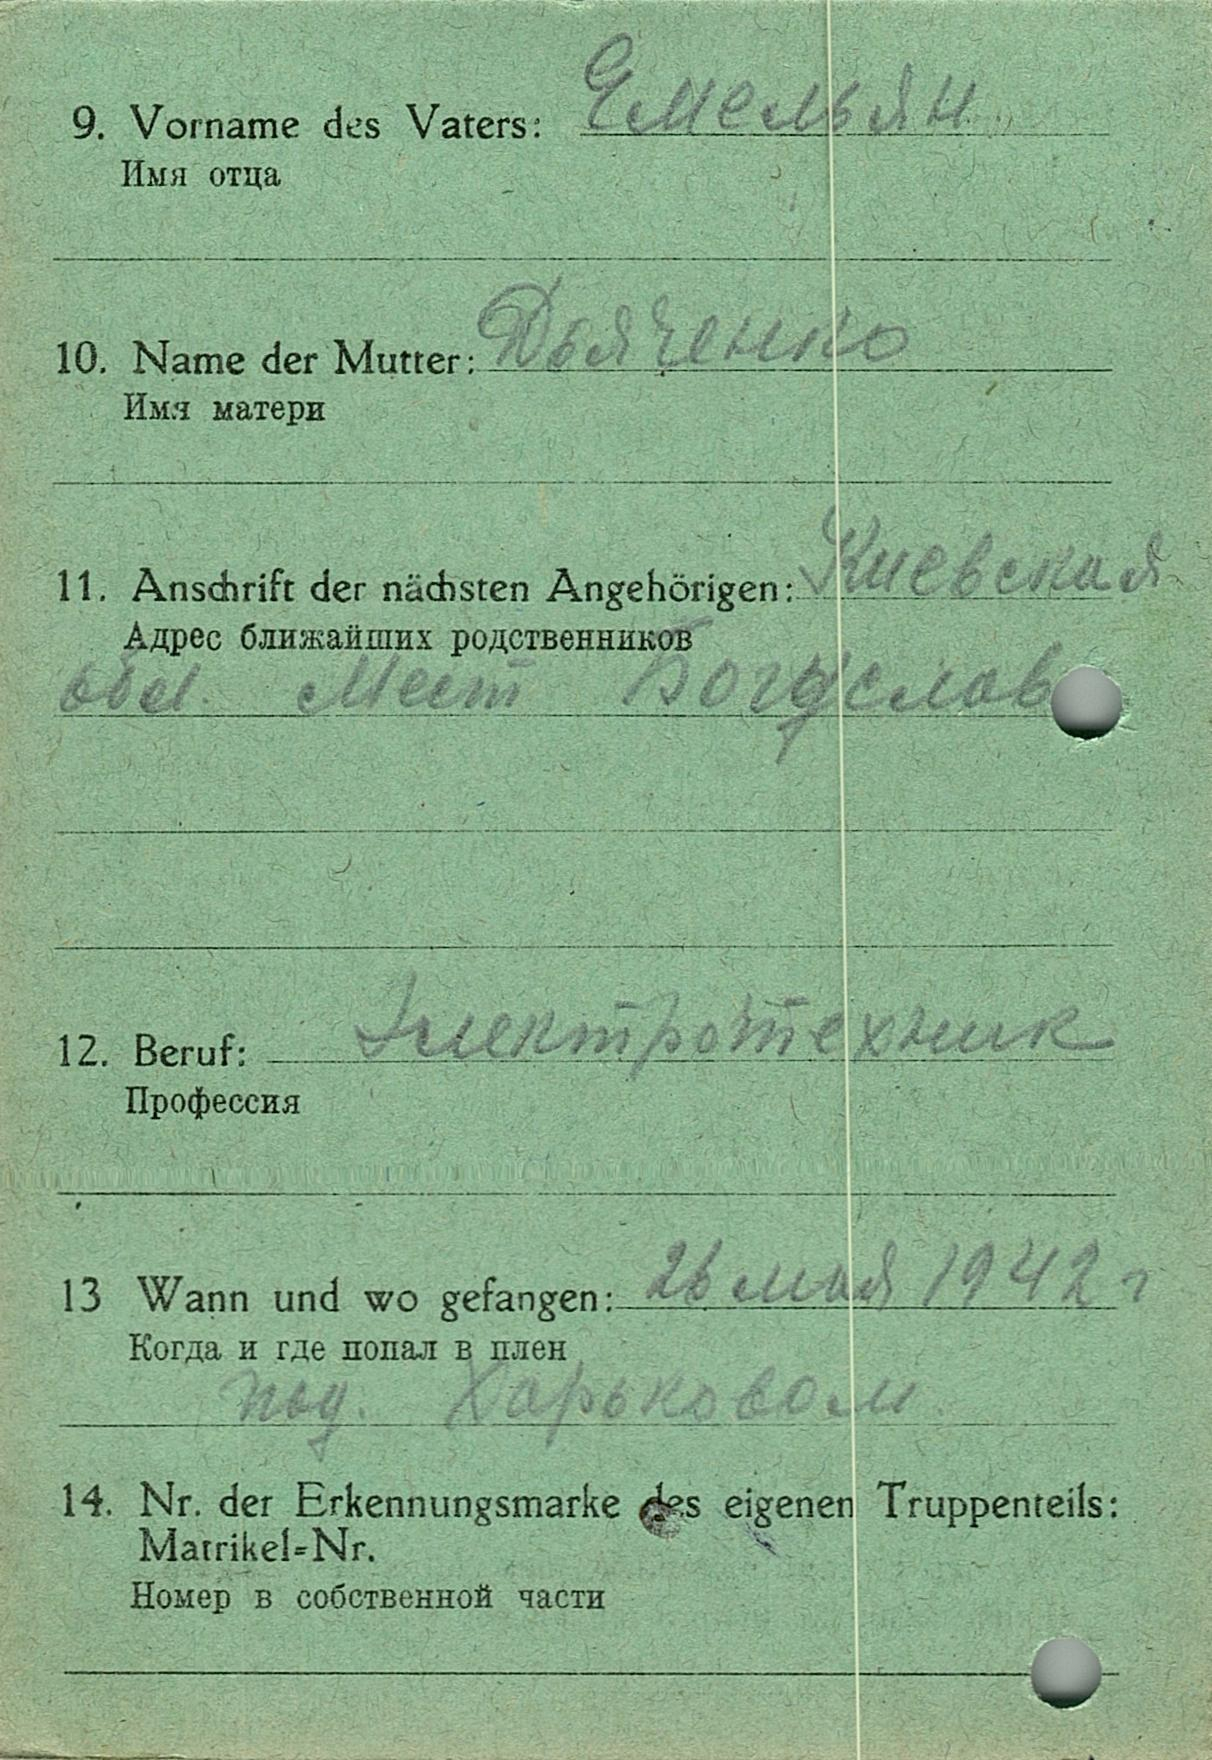 9. Vorname des Vaters: Емельян
Имя отца
10. Name der Mutter: Дьяченко
Имя матери
11. Anschrift der nächsten Angehörigen: Киевская
Адрес ближайших родственников
обл. Мест Богуслав
12. Beruf: Электротехник
Профессия
13 Wann und wo gefangen: 26 мая 1942 г
Когда и где попал в плен
под. Харьковом
14. Nr. der Erkennungsmarke des eigenen Truppenteils:
Matrikel=Nr.
Номер в собственной части